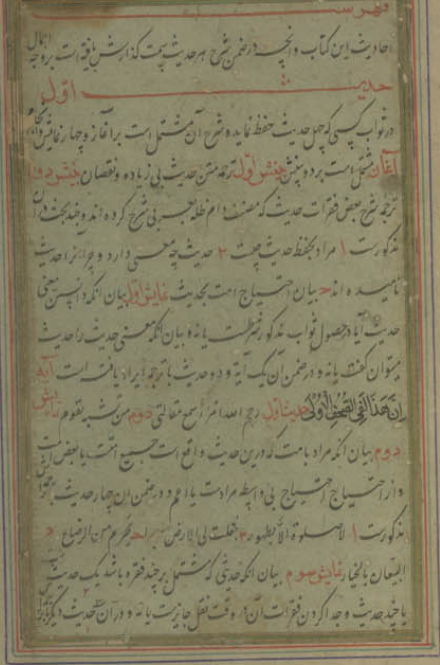 فهرست
احادیث این کتاب و آنچه در ضمن شرح هر حدیث سمت گذارش یافته است بر وجه اجمال
حدیث اول
در ثواب کسی که چهل حدیث حفظ نماید و شرح آن مشتمل است بر آغاز و چهار نمایش
آغاز مشتمل است بر دو بینش بینش اول ترجمه متن حدیث بی زیاده و نقصان بینش دوم
ترجمه شرح بعض فقرات حدیث که مصنف دام ظله بعربی شرح کرده اند و چند بحث در آن
مذکور است ۱ مراد بحفظ حدیث چیست ۲ حدیث چه معنی دارد و چرا آنرا حدیث
نامیده اند بیان احتیاج امت بحدیث نمایش اول بیان آنکه دانستن معنی
حدیث آیا در حصول ثواب مذکور شرطست یا نه و بیان آنکه معنی حدیث را حدیث
میتوان گفت یا نه و در ضمن آن یک آیه و دو حدیث با ترجمه ایراد یافته است آیه
ان هذا لفی الصحف الاولی حدیث اول رحم الله امرأ سمع مقالتی دوم من تشبه بقوم نمایش
دوم بیان آنکه مراد بامت که درین حدیث واقع است جمیع امت یا بعض امت
و از احتیاج احتیاج بی واسطه مراد است یا اعم و در ضمن این چهار حدیث
مذکور است ۱ لا صلوة الا بطهور ۲ جعلت لی الارض مسجدا یحرم من الرضاع
البیعان بالخیار نمایش سوم بیان آنکه حدیثی که مشتمل بر چند فقره باشد یک حدیث
یا چند حدیث و جدا کردن فقرات آن در وقت نقل جایز است یا نه و در آن حدیث دیگر